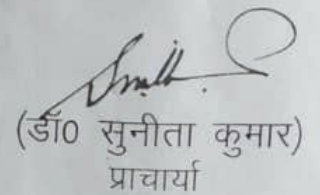 (डॉ0 सुनीता कुमार)
प्राचार्या